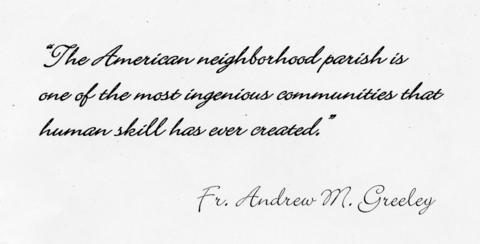 “The American neighborhood parish is
one of the most ingenious communities that
human skill has ever created.”
Fr. Andrew M. Greeley